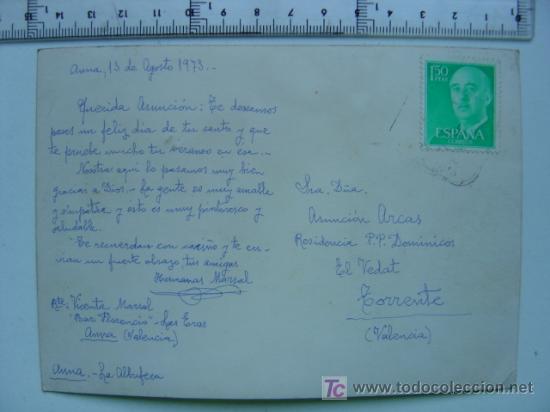 Anna, 13 de Agosto 1973.-
Querida Asunción: Te deseamos
pases un feliz día de tu santo y que
te pruebe mucho tu veraneo en esa...
Nostras aquí lo pasamos muy bien
gracias a Dios.- La gente es muy amable
y simpática y esto es muy pintoresco y
saludable.
Te recuerdan con cariño y te en-
vían un fuerte abrazo, tus amigas
Hermanas Marsal
Rte: Vicenta Marsal
"Bar Florencio" - Las Eras
Anna (Valencia)
Anna.- La Albufera
1'50
PTAS
ESPAÑA
CORREOS
Sra. Dña.
Asunción Arcas
Residencia P.P. Dominicos
El Vedat
Torrente
(Valencia)
todocoleccion
www.todocoleccion.net